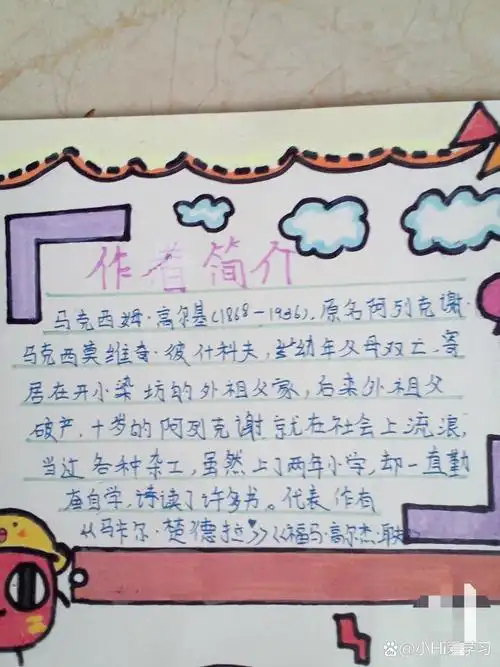 作者简介
马克西姆·高尔基(1868-1936),原名阿列克谢·
马克西莫维奇·彼什科夫,幼年父母双亡,寄
居在开小染坊的外祖父家,后来外祖父
破产,十岁的阿列克谢就在社会上流浪,
当过各种杂工,虽然上了两年小学,却一直勤
奋自学,读了许多书。代表作有
《马卡尔·楚德拉》《福马·高尔杰耶夫
小Hi爱学习